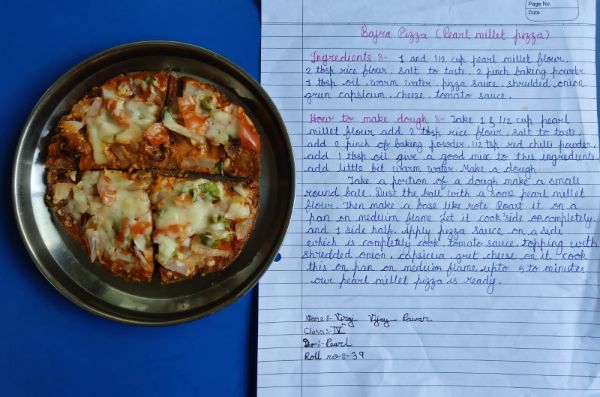 Page No.
Date :
Bajra Pizza (Pearl millet pizza)
Ingredients :- 1 and 1/2 cup pearl millet flour,
2 tbsp rice flour, salt to taste, 2 pinch baking powder
1 tbsp oil, warm water, pizza sauce, shredded onion
green capsicum, cheese, tomato sauce.
How to make dough :- Take 1 & 1/2 cup pearl
millet flour add 2 tbsp rice flour, salt to taste,
add 2 pinch of baking powder, 1/2 tsp red chilli powder,
add 1 tbsp oil give a good mix to this ingredients
add little bit warm water. Make a dough.
Take a portion of a dough make a small
round ball. Dust the ball with a some pearl millet
flour. Then make a base like rote. Roast it on a
pan on meduim flame let it cook side completely
and 1 side half. Apply pizza sauce on a side
which is completely cook, tomato sauce, topping with
shredded onion, capsicum, grat cheese on it. cook
this on pan on meduim flame upto 5 to minutes
our pearl millet pizza is ready.
Name :- Viraj Vijay Pawar
Class :- IV
Div :- Pearl
Roll no :- 39